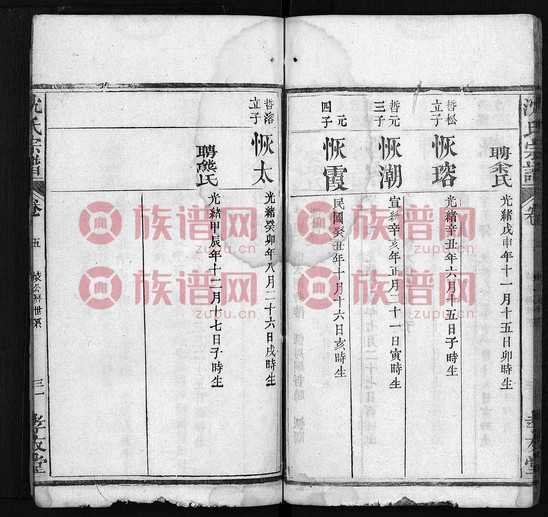 沈氏宗譜
卷
孝友堂
聘余氏
光緒戊申年十一月十五日卯時生
哲松立子
恢瑢
光緒辛丑年六月十五日子時生
哲元三子
恢潮
宣統辛亥年正月二十一日寅時生
元四子
恢霞
民國癸丑年十月十六日亥時生
哲溶立子
恢太
光緒癸卯年八月二十六日戌時生
聘熊氏
光緒甲辰年十二月十七日子時生
沈氏宗譜
卷
五
公
世系
三一
孝友堂
族谱网
zupu.cn
族谱网
zupu.cn
族谱网
zupu.cn
族谱网
zupu.cn